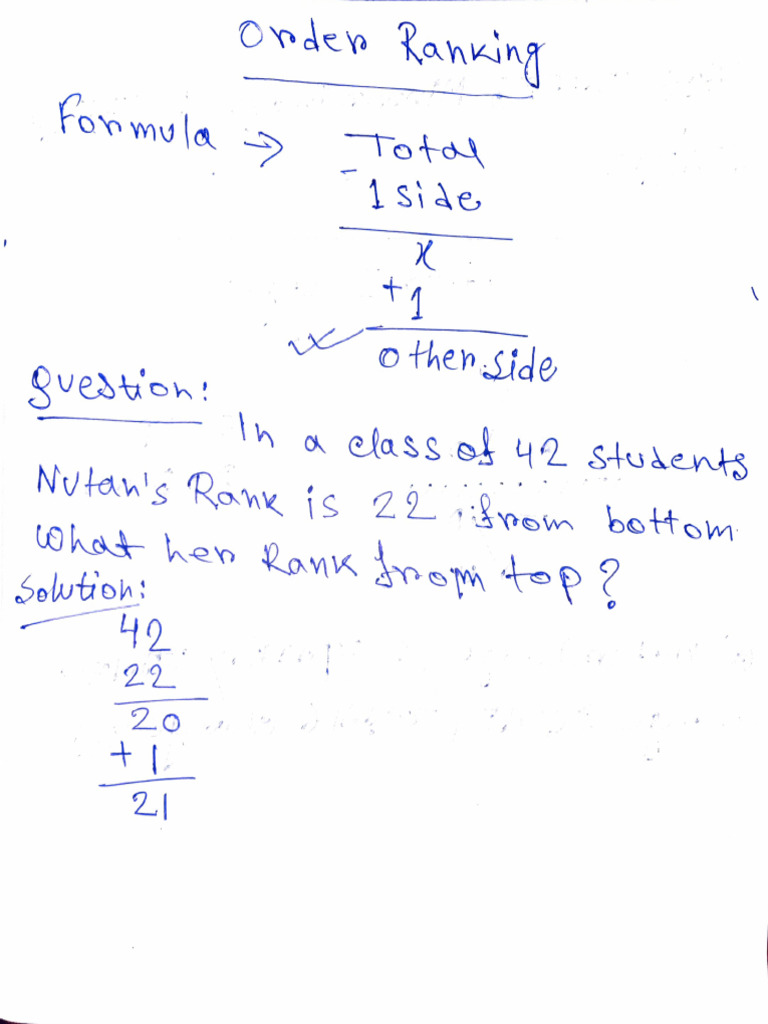 Order Ranking
Formula → Total
- 1 side
x
+ 1
other side
Question:
In a class of 42 students
Nutan's Rank is 22 from bottom
What her Rank from top?
Solution:
42
22
20
+ 1
21